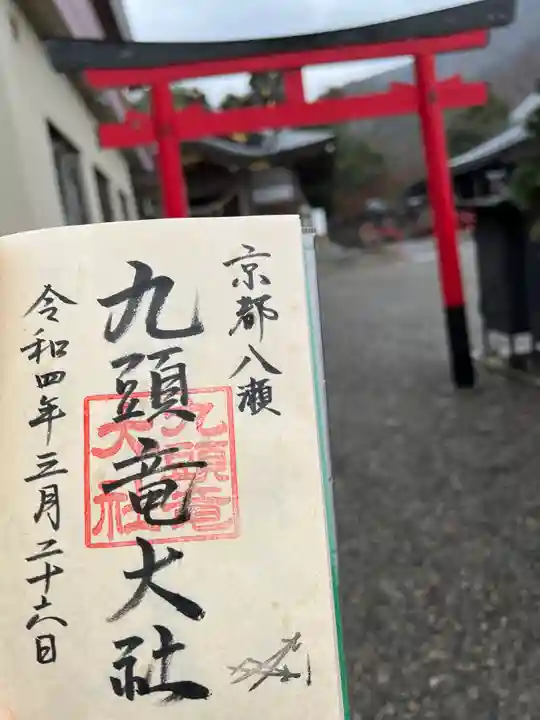 京都八瀬
九頭竜大社
九頭竜
大社
令和四年三月二十六日